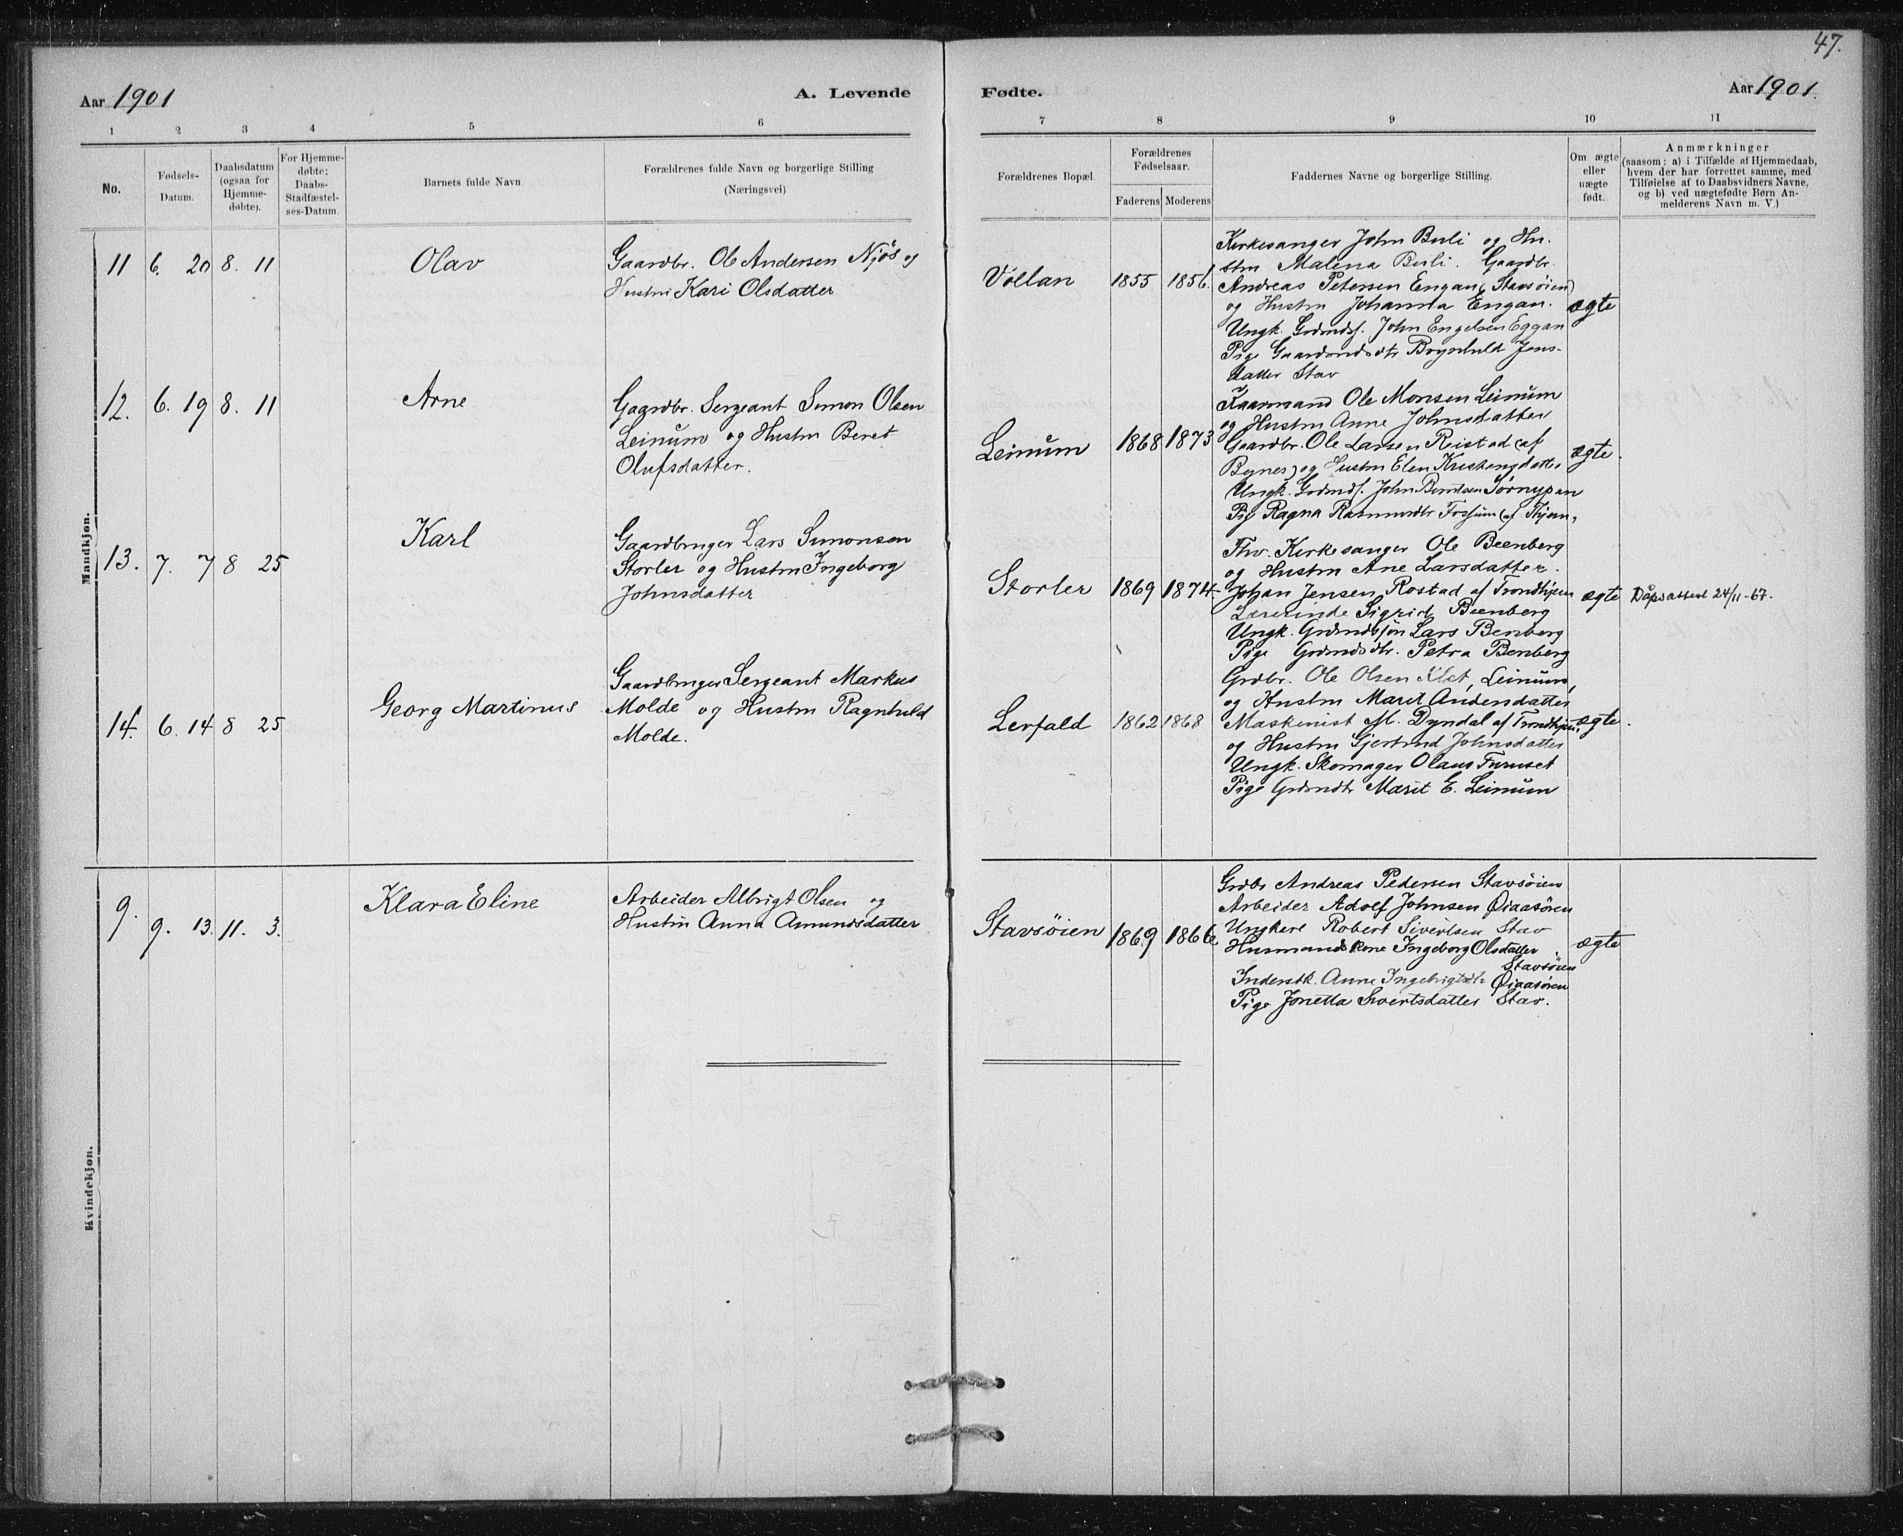 47.
Aar 1901
A. Levende
Fødte.
Aar 1901.
1 2 3 4 5 6
7 8 9 10 11
No.
Fødsels-
Datum.
Daabsdatum
(ogsaa for
Hjemme-
døbte).
For Hjemme-
døbte:
Daabs-
Stadfæstel-
ses-Datum.
Barnets fulde Navn
Forældrenes fulde Navn og borgerlige Stilling
(Næringsvei)
Forældrenes Bopæl.
Forældrenes
Fødselsaar.
Faderens Moderens
Faddernes Navne og borgerlige Stilling.
Om ægte
eller
uægte
født.
Anmærkninger
(saasom: a) i Tilfælde af Hjemmedaab,
hvem der har forrettet samme, med
Tilføielse af to Daabsvidners Navne,
og b) ved uægtefødte Børn An-
melderens Navn m. V.)
Mandkjøn.
11 6. 20 8. 11
Olav
Gaardbr. Ole Andersen Njøs og
Hustru Kari Olsdatter
Vollan
1855 1856.
Kirkesanger John Buli og Hu-
stru Malena Buli. Gaardbr.
Andreas Petersen Engan (Stavsøien)
og Hustru Johanna Engan.
Ungk. Grdmds. John Engelsen Eggan
Pige Gaardmdsdtr Brynhild Jens-
datter Stav
ægte
12. 6. 19 8. 11
Arne
Gaardbr. Sergeant Simon Olsen
Leinum og Hustru Beret
Olufsdatter.
Leinum
1868 1873
Kaarmand Ole Monsen Leinum
og Hustru Anne Johnsdatter
Gaardbr. Ole Larsen Reistad (af
Bynes) og Hustru Elen
Ungk. Grdmds. John Berntsen Sørnypan
Pig Ragna Rasmusdtr Fossum
ægte.
13. 7. 7 8 25
Karl
Gaardbruger Lars Simonsen
Storler og Hustru Ingeborg
Johnsdatter
Storler
1869 1874
Fhv. Kirkesanger Ole Beenberg
og Hustru Ane Larsdatter.
Johan Jensen Rostad af Trondhjem
Lærerinde Sigrid Beenberg
Ungk. Grdmdssøn Lars Benberg
Pige Grdmdsdtr. Petra Benberg
ægte
Dåpsattest 24/11-67.
14. 6. 14 8 25
Georg Martinus
Gaardbruger Sergeant Markus
Molde og Hustru Ragnhild
Molde.
Lerfald
1862 1868
Grdbr. Ole Olsen Leinum,
og Hustru Marit
Maskinist M. Dyndal af Trondhjem,
og Hustru Gjertrud Johnsdatter
Ungk. Skomager Olaus Furuset
Pige Grdmdtr Marit E. Leinum
ægte.
Kvindekjøn.
9. 9. 13. 11. 3.
Klara Eline
Arbeider Albrigt Olsen og
Hustru Anna Amundsdatter
Stavsøien
1869 1866
Grdbr Andreas Pedersen Stavsøien
Arbeider Adolf Johnsen Øiaasøren
Ungkarl Robert Sivertsen Stav
Husmandskone Ingeborg Olsdatter
Stavsøien
Inderstk. Anne Ingebrigtsdtr Øiaasøren
Pige Jonetta Sivertsdatter Stav.
ægte